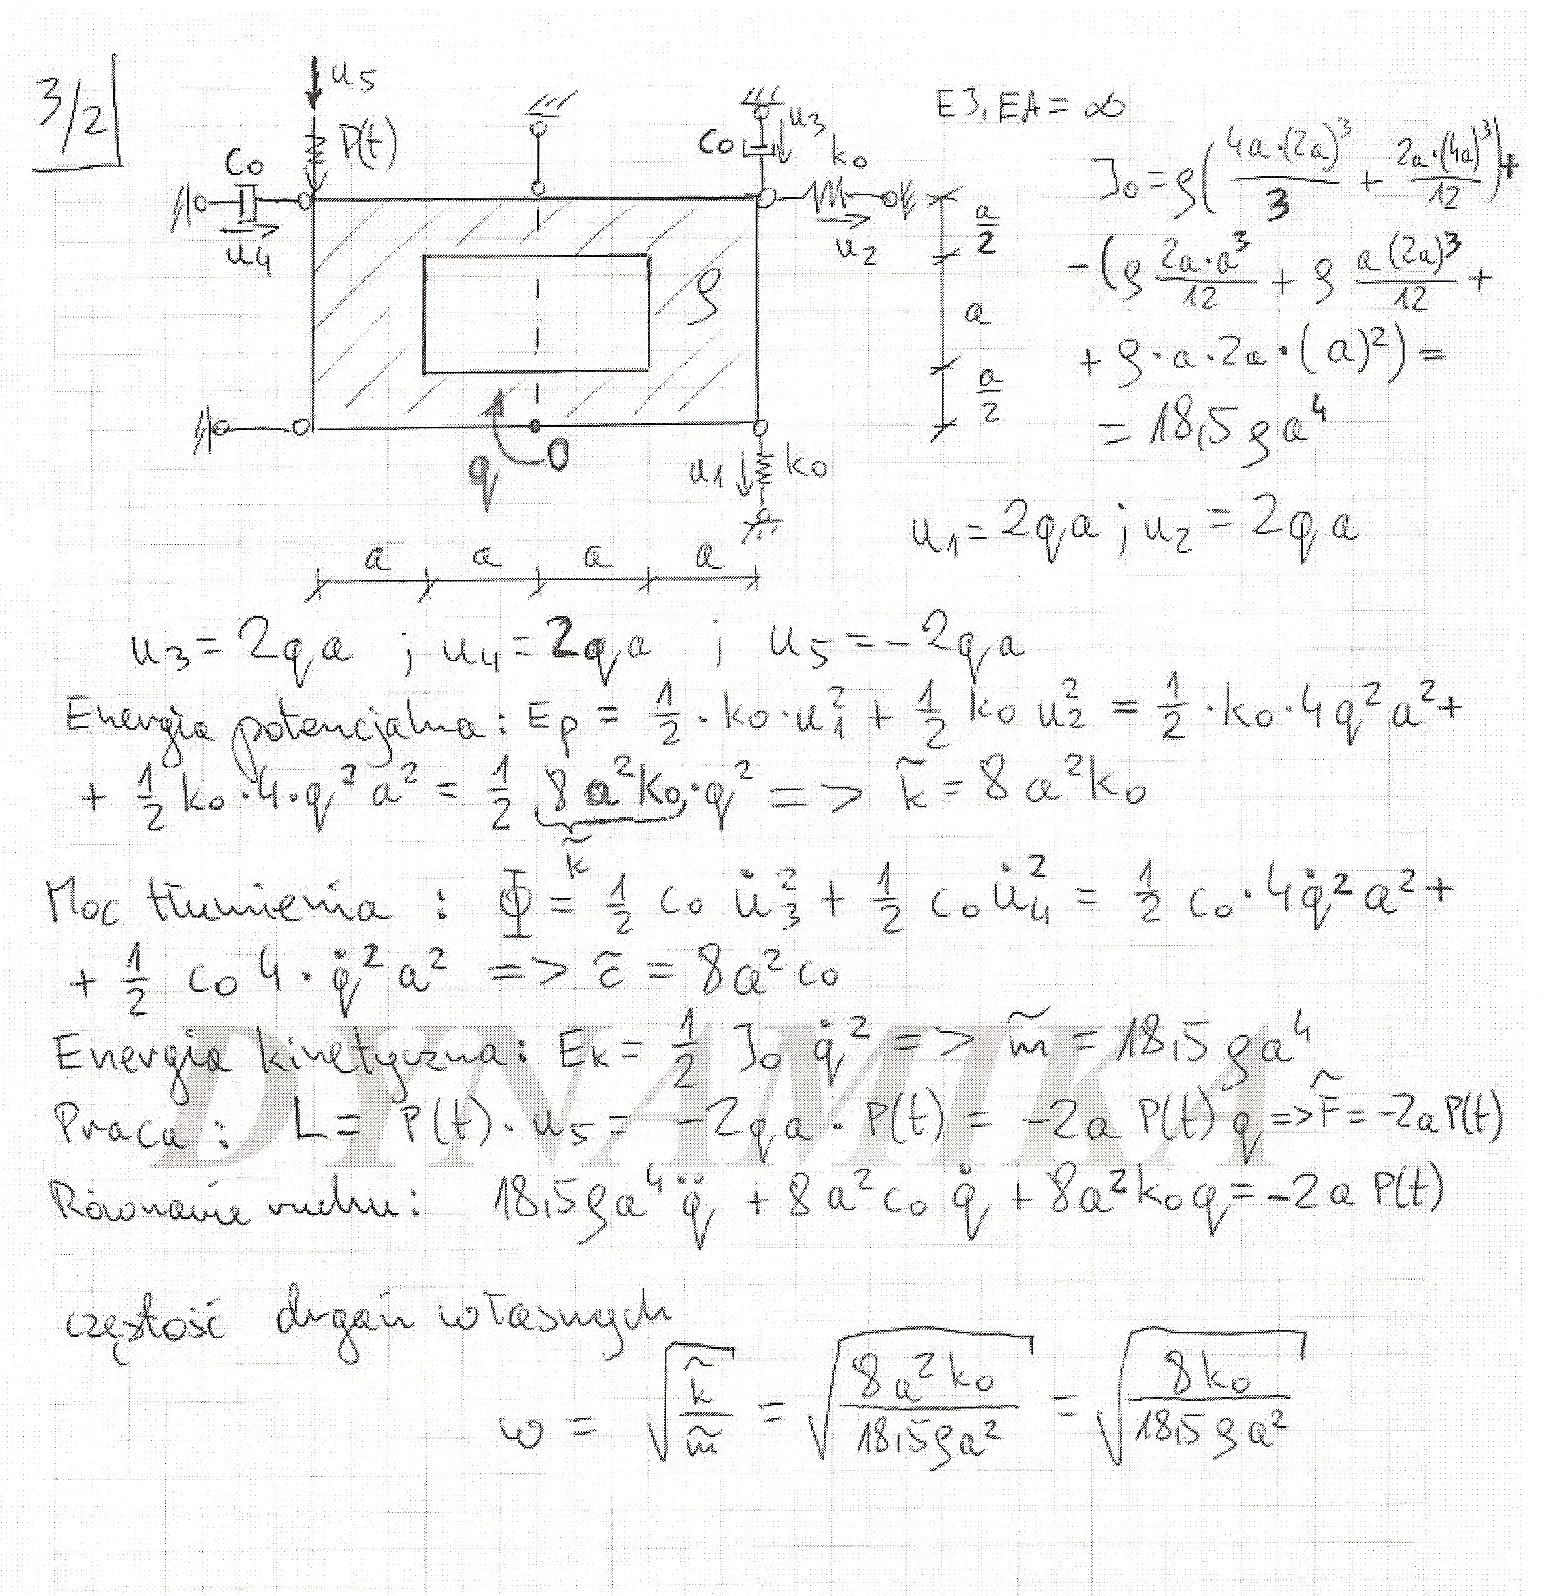 3/2
u5
P(t)
C0
u4
C0
u3
k0
u2
ρ
q
O
u1
k0
a/2
a
a/2
a a a a
EJ, EA = ∞
J0 = ρ(4a·(2a)^3/3 + 2a·(4a)^3/12) +
-(ρ 2a·a^3/12 + ρ a(2a)^3/12 +
+ ρ·a·2a·(a)^2) =
= 18,5 ρa^4
u1 = 2qa ; u2 = 2qa
u3 = 2qa ; u4 = 2qa ; u5 = -2qa
Energia potencjalna: Ep = 1/2·k0·u1^2 + 1/2 k0 u2^2 = 1/2·k0·4q^2a^2 +
+ 1/2 k0·4·q^2a^2 = 1/2 8a^2k0·q^2 => k̃ = 8a^2k0
k̃
Moc tłumienia : Φ = 1/2 c0 u̇3^2 + 1/2 c0 u̇4^2 = 1/2 c0·4q̇^2a^2 +
+ 1/2 c0 4·q̇^2a^2 => c̃ = 8a^2c0
Energia kinetyczna: Ek = 1/2 J0 q̇^2 => m̃ = 18,5 ρa^4
Praca: L = P(t)·u5 = -2qa·P(t) = -2a P(t) q => F̃ = -2aP(t)
Równanie ruchu: 18,5ρa^4 q̈ + 8a^2c0 q̇ + 8a^2k0q = -2a P(t)
DYNAMIKA
częstość drgań własnych
ω = √(k̃/m̃) = √(8a^2k0/18,5ρa^2) = √(8k0/18,5ρa^2)